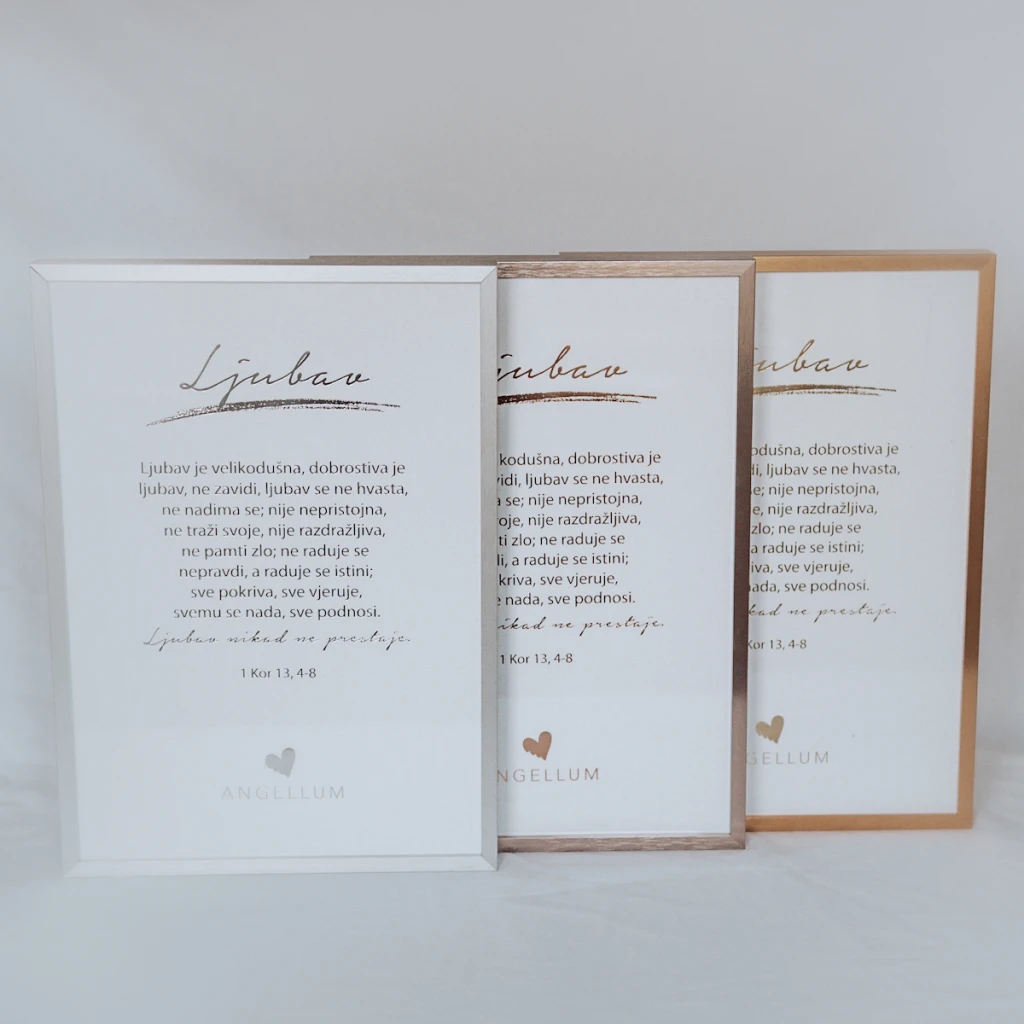 Ljubav
Ljubav je velikodušna, dobrostiva je
ljubav, ne zavidi, ljubav se ne hvasta,
ne nadima se; nije nepristojna,
ne traži svoje, nije razdražljiva,
ne pamti zlo; ne raduje se
nepravdi, a raduje se istini;
sve pokriva, sve vjeruje,
svemu se nada, sve podnosi.
Ljubav nikad ne prestaje.
1 Kor 13, 4-8
ANGELLUM
jubav
kodušna, dobrostiva je
vidi, ljubav se ne hvasta,
a se; nije nepristojna,
oje, nije razdražljiva,
ti zlo; ne raduje se
di, a raduje se istini;
kriva, sve vjeruje,
e nada, sve podnosi.
nikad ne prestaje.
1 Kor 13, 4-8
NGELLUM
ubav
odušna, dobrostiva je
di, ljubav se ne hvasta,
se; nije nepristojna,
e, nije razdražljiva,
zlo; ne raduje se
a raduje se istini;
iva, sve vjeruje,
nada, sve podnosi.
kad ne prestaje.
Kor 13, 4-8
GELLUM